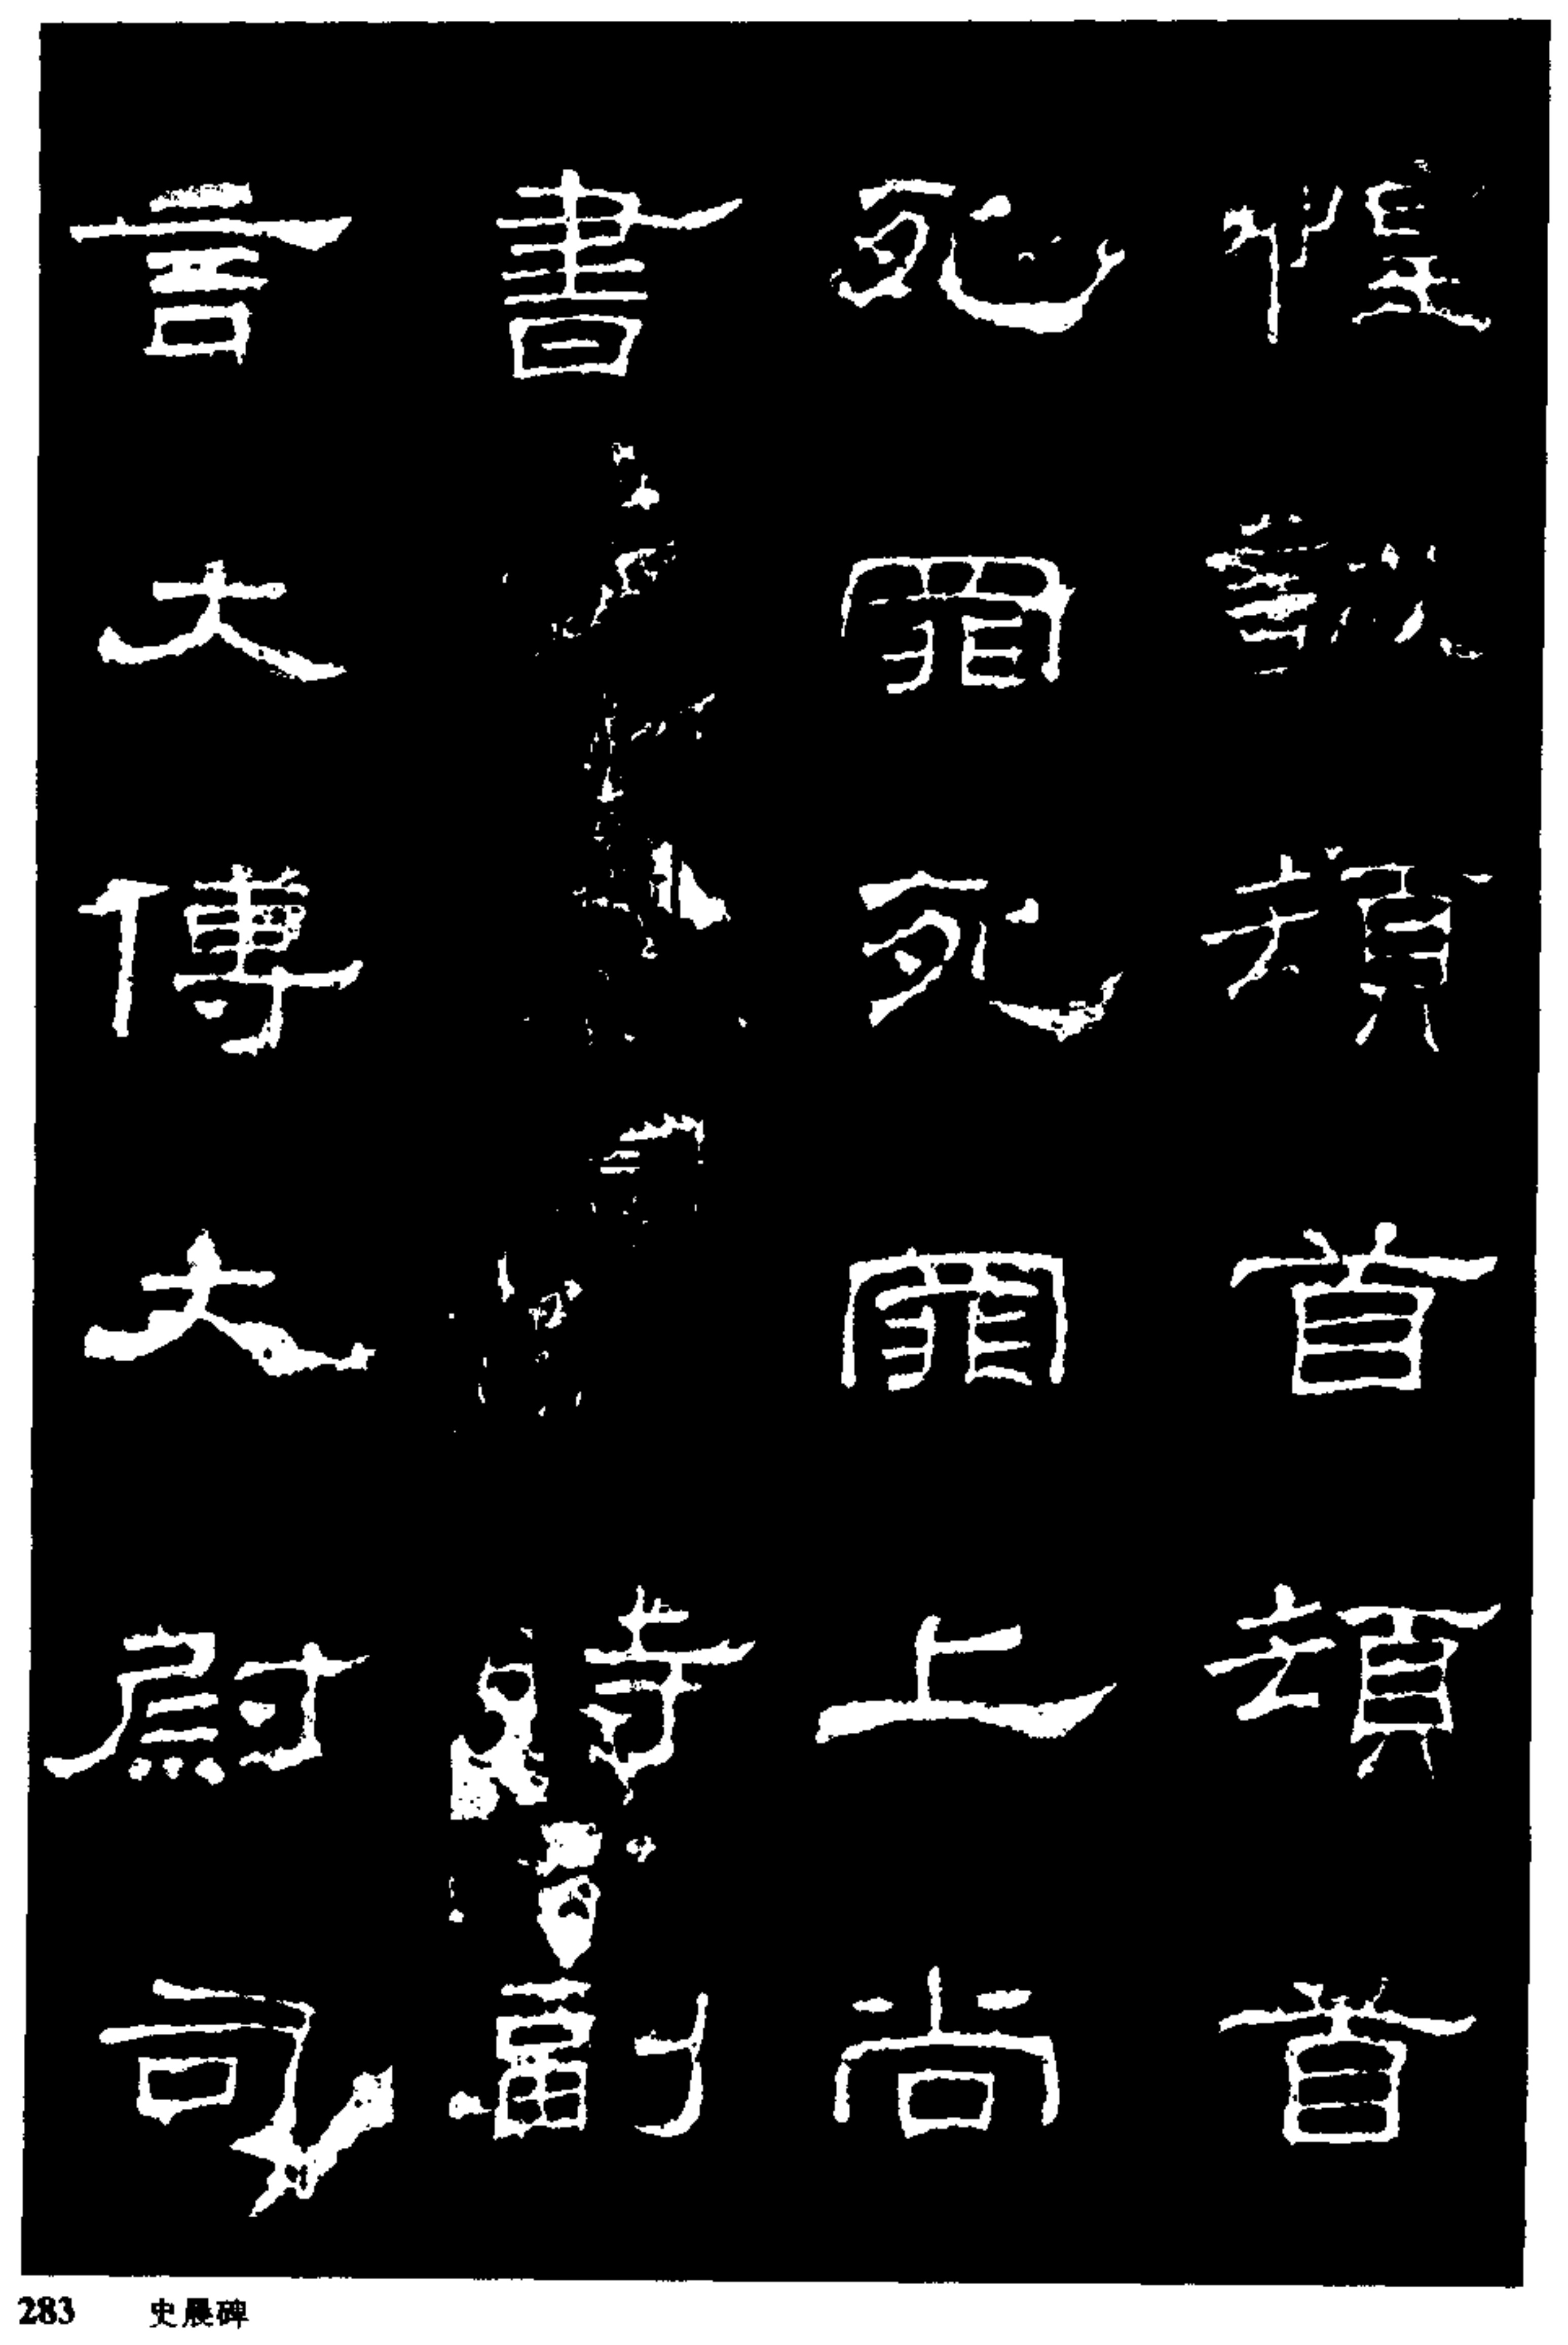 惶誠頓首頓首
死罪死罪上尚
書
時副
言大傅大尉司
283 史晨碑